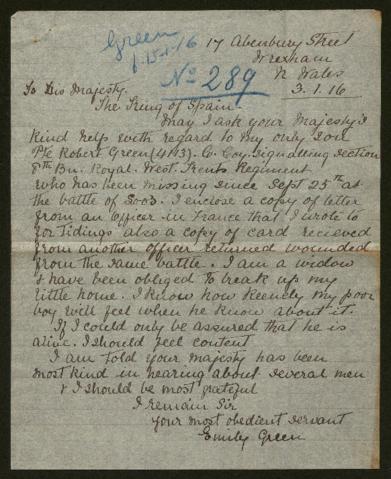 Green
1.15.1.16
17 Abenbury Street
Wrexham
N Wales
No 289
3.1.16
To His Majesty.
The King of Spain
May I ask your Majesty's
kind help with regard to my only son
Pte Robert Green (4113). C. Coy. Signalling section
8th Bn. Royal. West. Kents Regiment
who has been missing since Sept 25th at
the battle of Loos. I enclose a copy of letter
from an Officer in France that I wrote to
for Tidings also a copy of card recieved
from another officer returned wounded
from the same battle. I am a widow
& have been obliged to break up my
little home. I know how keenly my poor
boy will feel when he know about it.
If I could only be assured that he is
alive. I should feel content
I am told your majesty has been
most kind in hearing about several men
& I should be most grateful
I remain Sir
Your most obedient servant
Emily Green